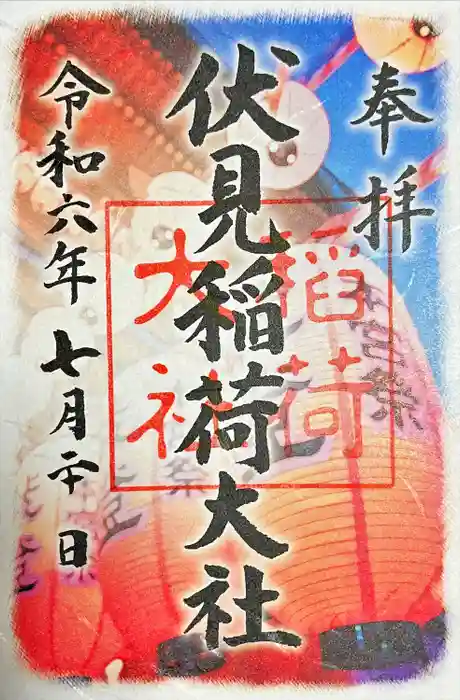 奉拝
伏見稲荷大社
稲荷
大社
令和六年七月二十日
宮祭